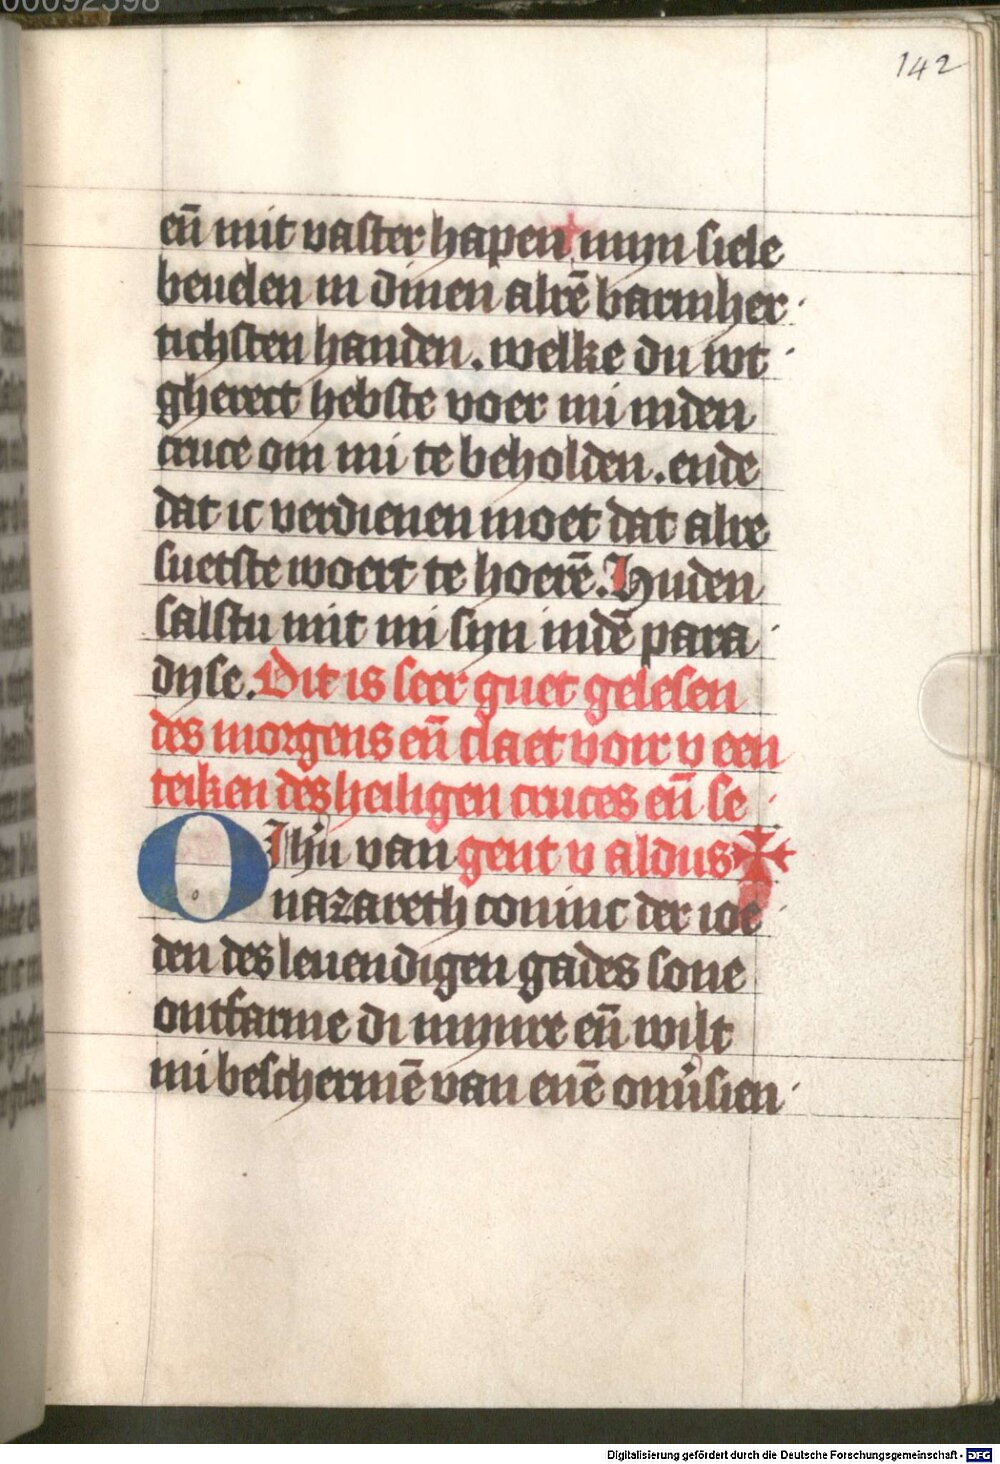 142
en̄ mit vaster hapen mijn siele
beuelen in dinen alrē barmher
tichsten handen. welke du wt
gherect hebste voer mi inden
cruce om mi te beholden. ende
dat ic verdienen moet dat alre
suetste woert te hoerē. Huden
salstu mit mi sijn indē para
dijse. Dit is seer guet gelesen
des morgens en̄ slaet voir v een
teiken des heiligen cruces en̄ se
O Ihū van gent v aldus ✠
nazareth coninc der ioe
den des leuendigen gades sone
ontfarme di mijnre en̄ wilt
mi beschermē van enē onūsien
Digitalisierung gefördert durch die Deutsche Forschungsgemeinschaft - DFG